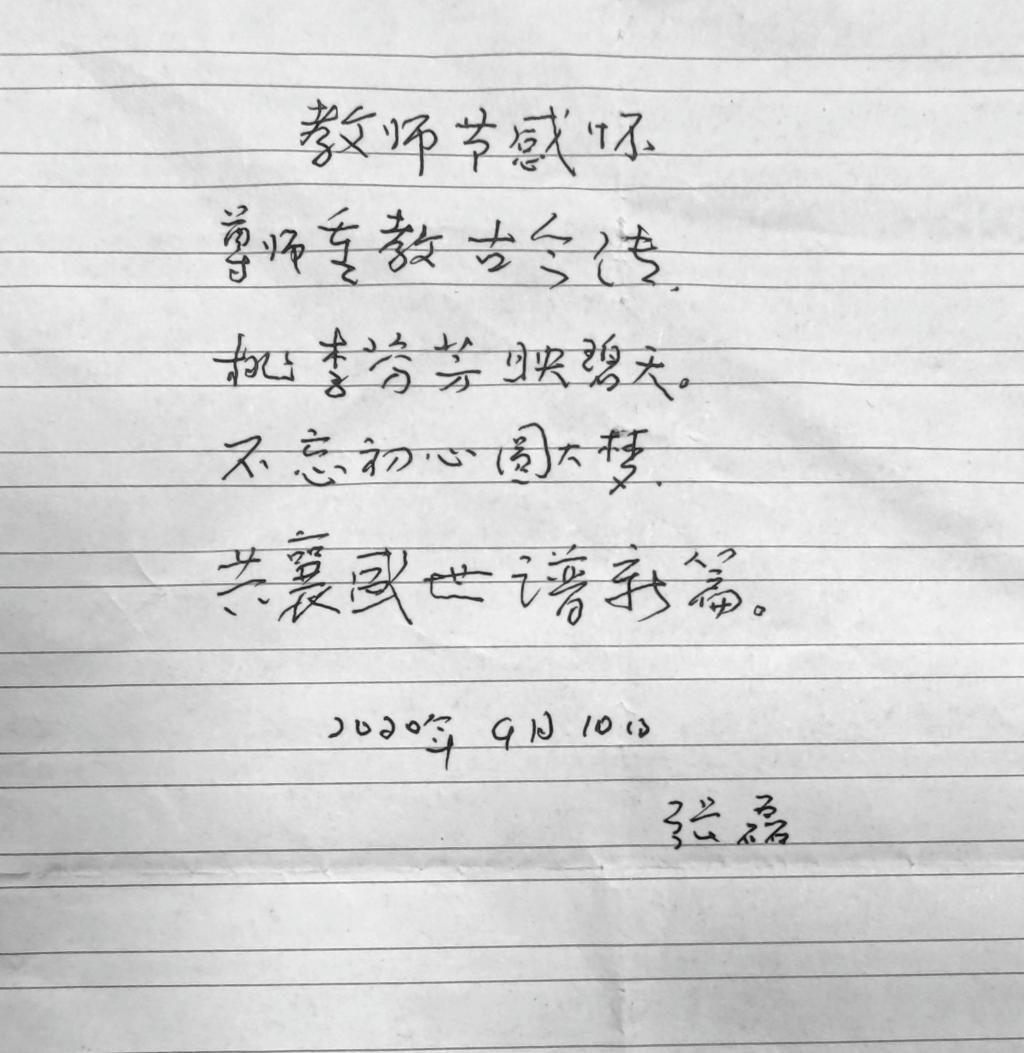 教师节感怀
尊师重教古今传.
桃李芬芳映碧天。
不忘初心圆大梦.
共襄盛世谱新篇。
2020年 9月10日
张磊